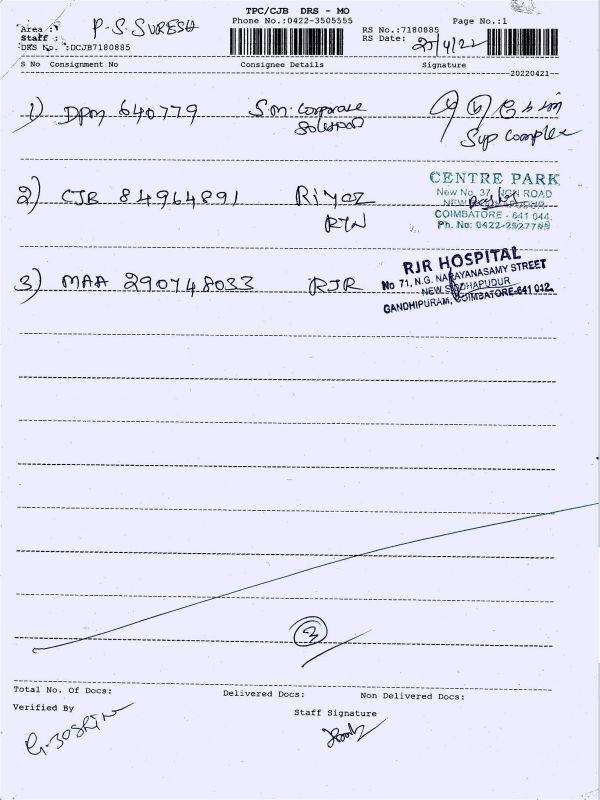 TPC/CJB DRS - MO
Phone No.:0422-3505555 Page No.:1
Area : P.S. SURESH RS No.:7180885
Staff : RS Date: 25/4/22
DRS No. :DCJB7180885
S No Consignment No Consignee Details Signature
20220421
1) DPM 640779 S.M. Corporate
Solution
Sup Complex
2) CJB 84964891 Riyaz
RTN
CENTRE PARK
New No. 37, NGN ROAD
NEW SIDHAPUDUR
COIMBATORE - 641 044.
Ph. No: 0422-
3) MAA 290748033 RJR
RJR HOSPITAL
No 71, N.G. NARAYANASAMY STREET
NEW SIDHAPUDUR
GANDHIPURAM, COIMBATORE-641 012.
3
Total No. Of Docs: Delivered Docs: Non Delivered Docs:
Verified By Staff Signature